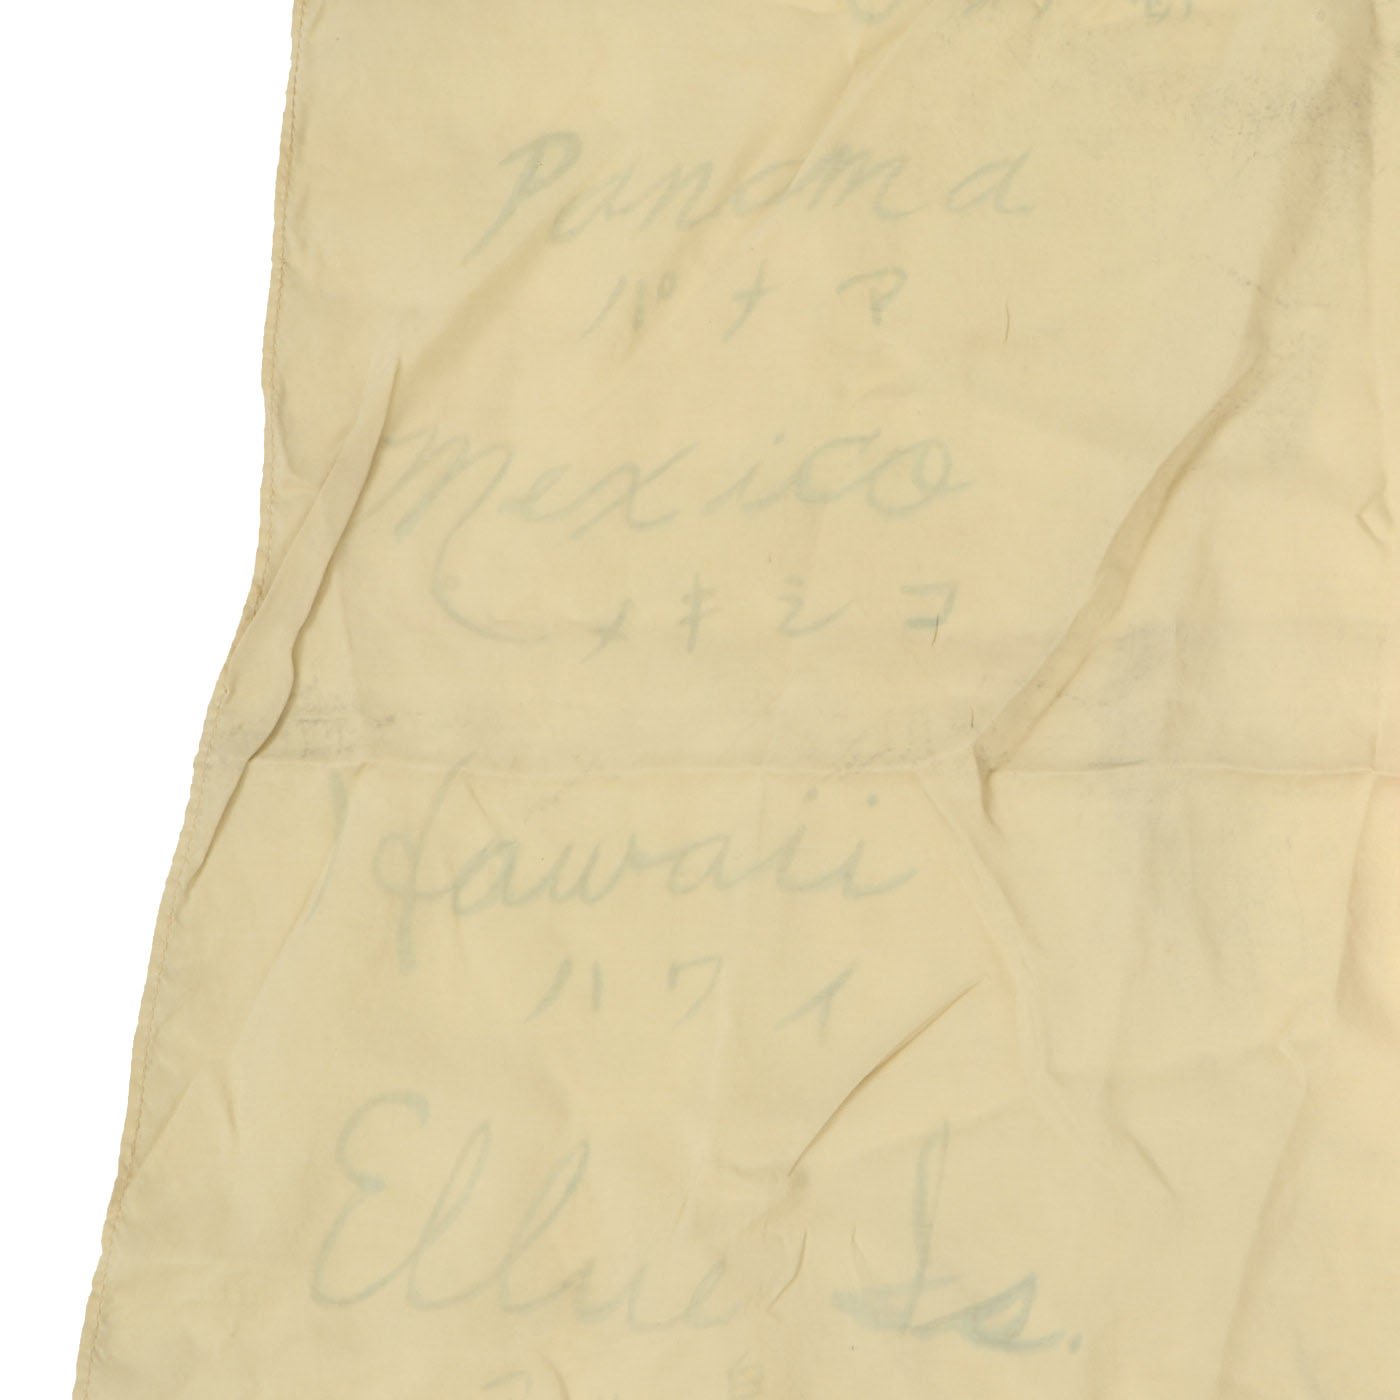 Panama
パナマ
Mexico
メキシコ
Hawaii
ハワイ
Ellue Is.